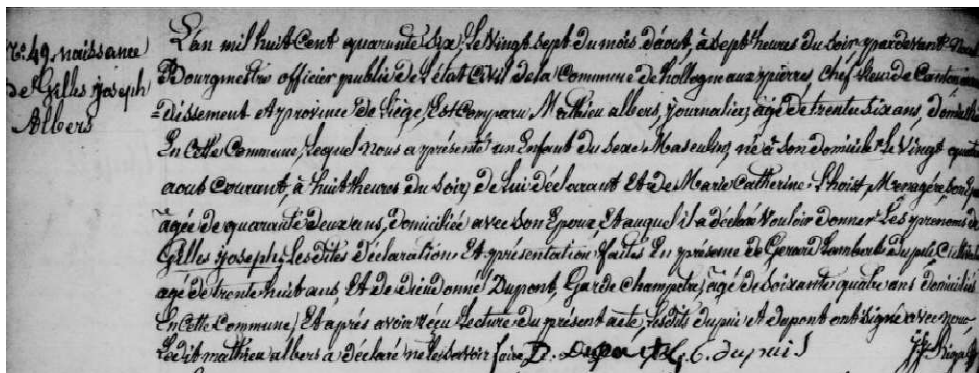 N.° 49. naissance
de Gilles joseph
Albers
L'an mil huit Cent quarante Six, le Vingt sept du mois d'aout, à Sept heures du Soir, pardevant Nous
Bourgmestre officier public de l'état Civil de la Commune de hollogne aux pierres, chef lieu de Canton
=dissement et province de Liége, Est Comparu Mathieu albers, journalier, âgé de trente Six ans, domicilié
En Cette Commune, lequel nous a présenté un Enfant du Sexe Masculin, né à Son domicile le Vingt quatre
aout Courant, à huit heures du Soir, de lui déclarant Et de Marie Catherine Lhoist, Menagére, Son
âgée de quarante deux ans, domiciliée avec Son Epoux, Et auquel il a déclaré Vouloir donner Les prénoms de
Gilles joseph, Les dites déclaration Et présentation faites En présence de Gerard Lambert dupuis Cultivateur
agé de trente huit ans, Et de dieudonné Dupont, Garde Champetre, âgé de Soixante quatre ans domiciliés
En Cette Commune, Et aprés avoir reçu Lecture du présent acte, Lesdits dupuis Et dupont ont Signé avec nous
Ledit mathieu albers a déclaré ne le Savoir faire, D. Dupont G. L. dupuis